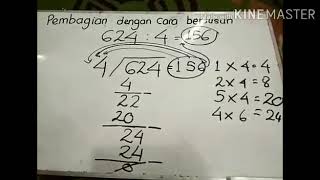 Made with KINEMASTER
Pembagian dengan cara bersusun
624 : 4 = 156
4 / 624 = 156
4
22
20
24
24
0
1 x 4 = 4
2 x 4 = 8
5 x 4 = 20
4 x 6 = 24